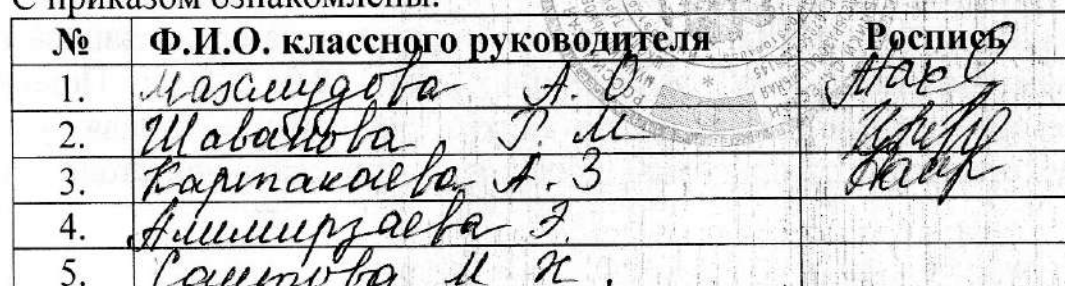 С приказом ознакомлены:
№ Ф.И.О. классного руководителя Роспись
1. Махмудова А. О
2. Шаванова Г. М
3. Картакаева А. З
4. Алимирзаева Э.
5. Саитова М Ж.